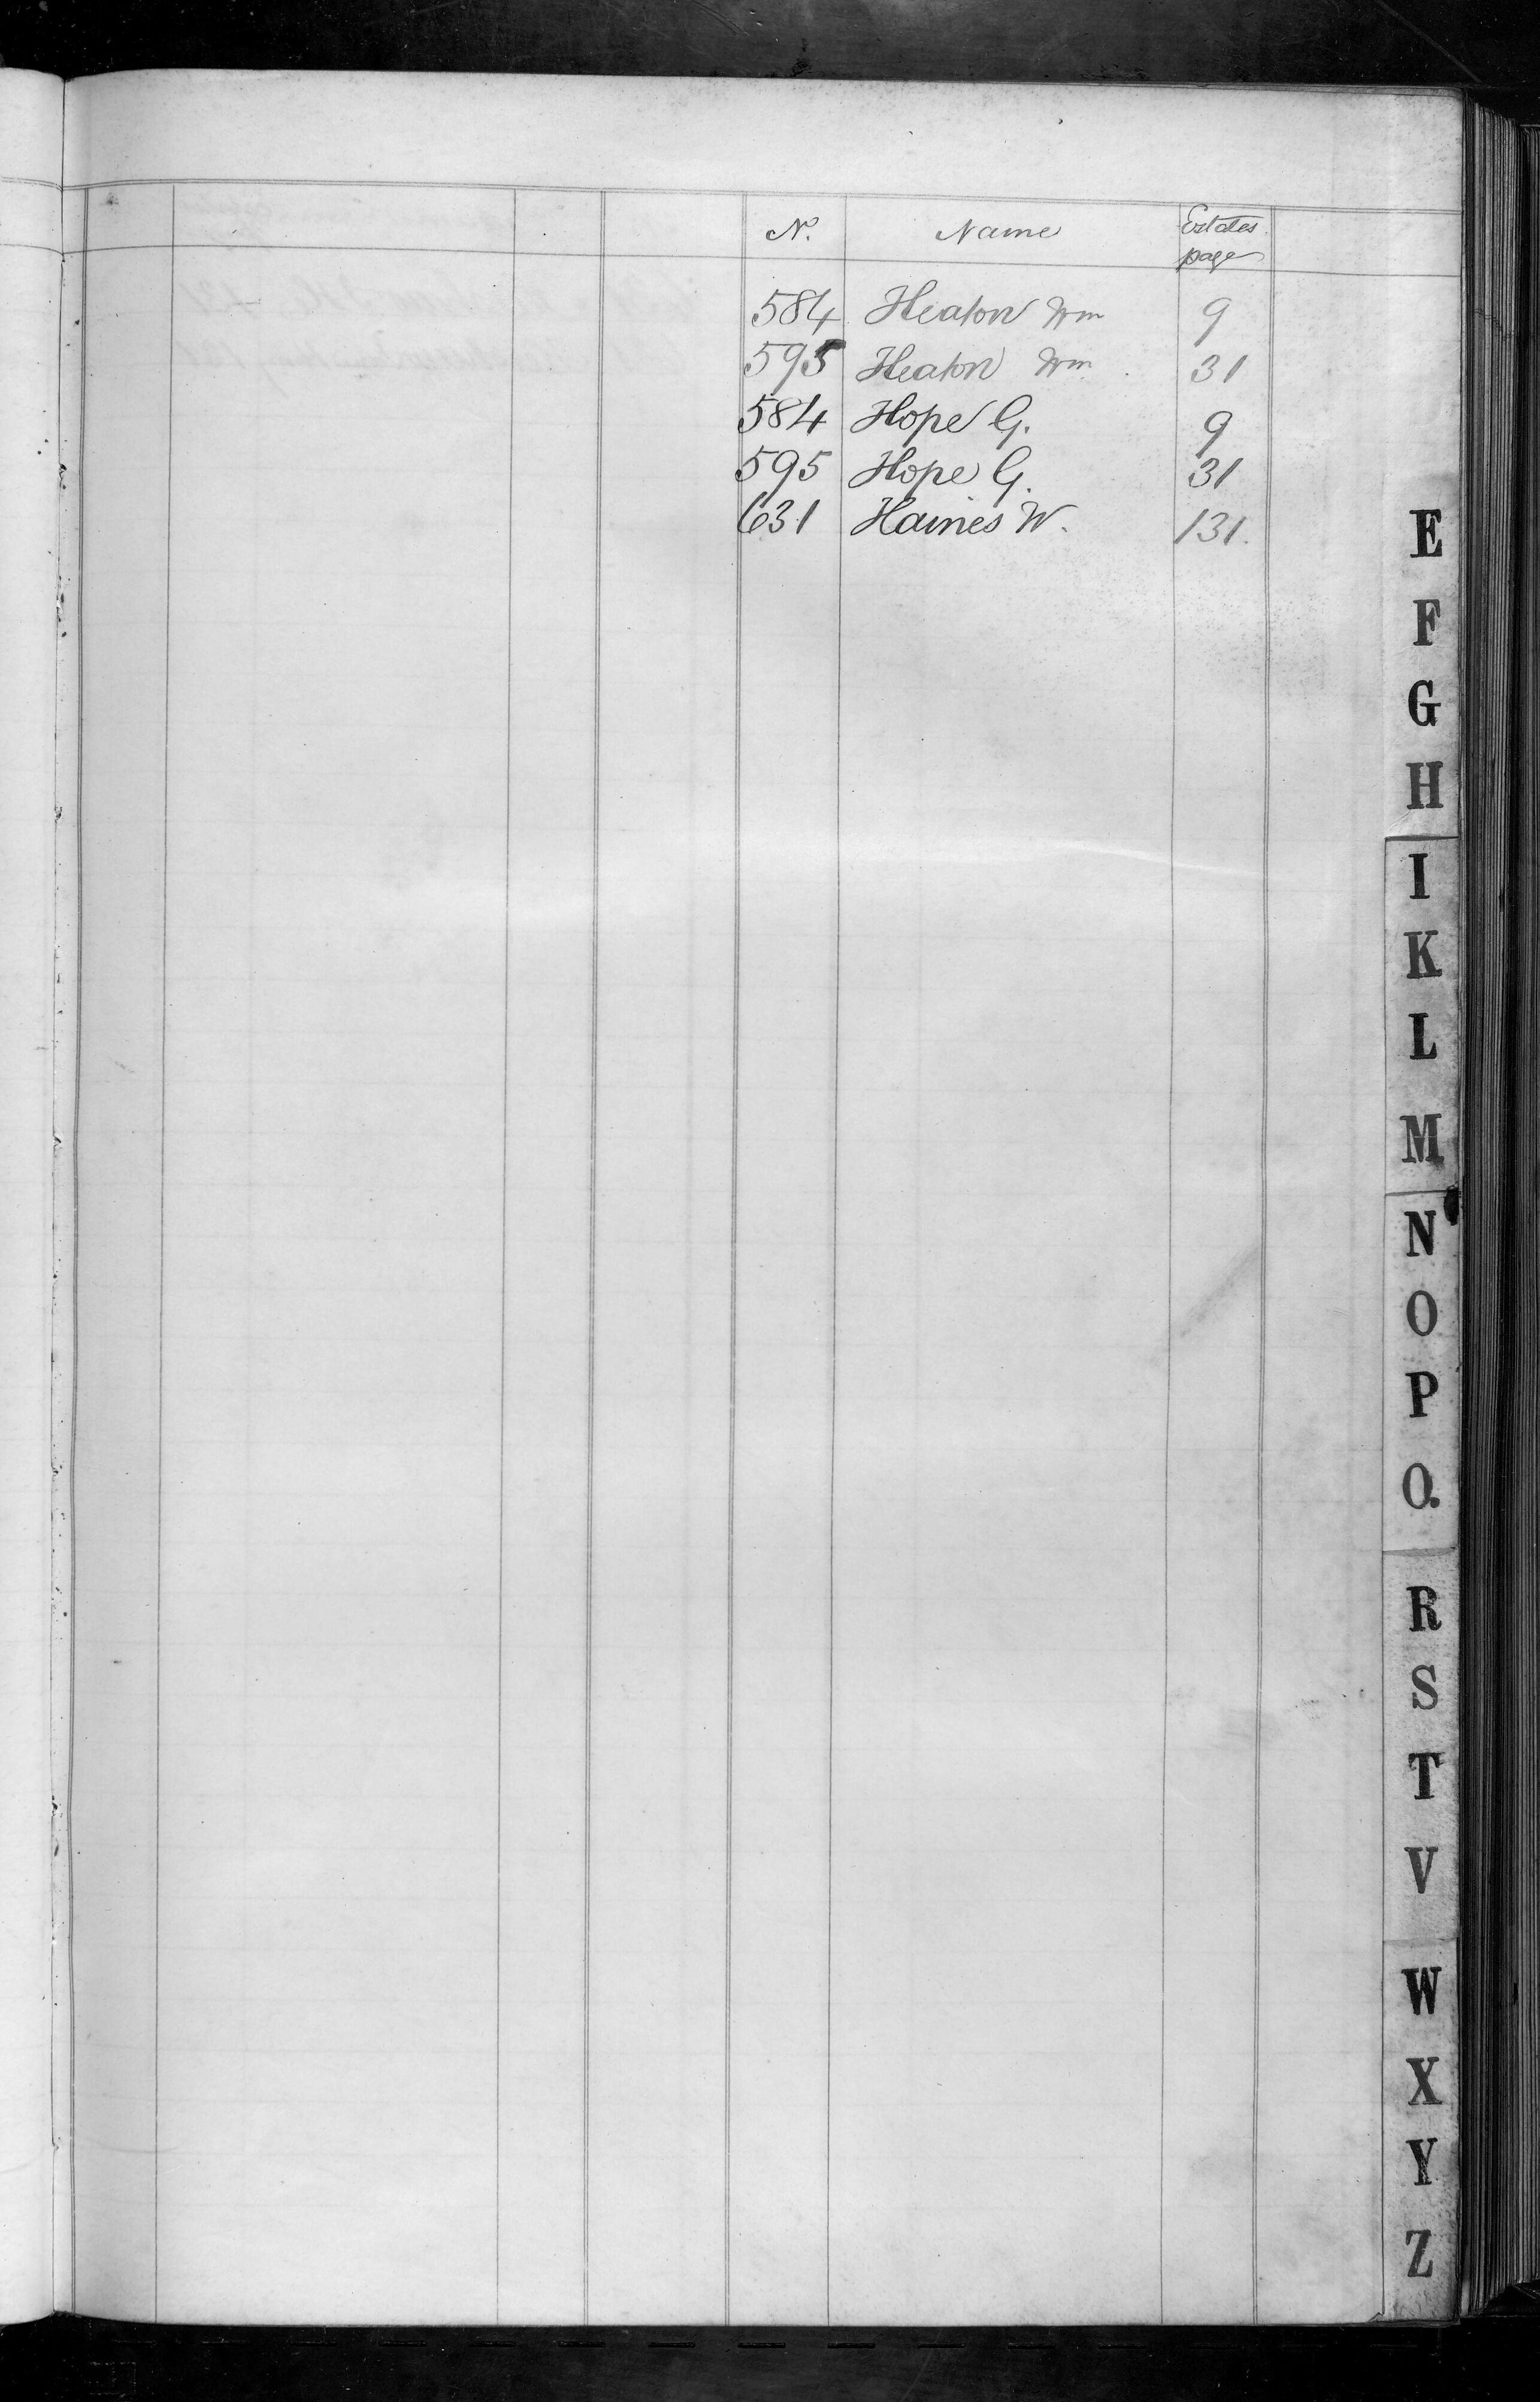 N. Name Estates page
584 Heaton Wm 9
595 Heaton Wm 31
584 Hope G. 9
595 Hope G. 31
631 Haines W. 131.
E
F
G
H
I
K
L
M
N
O
P
Q
R
S
T
V
W
X
Y
Z